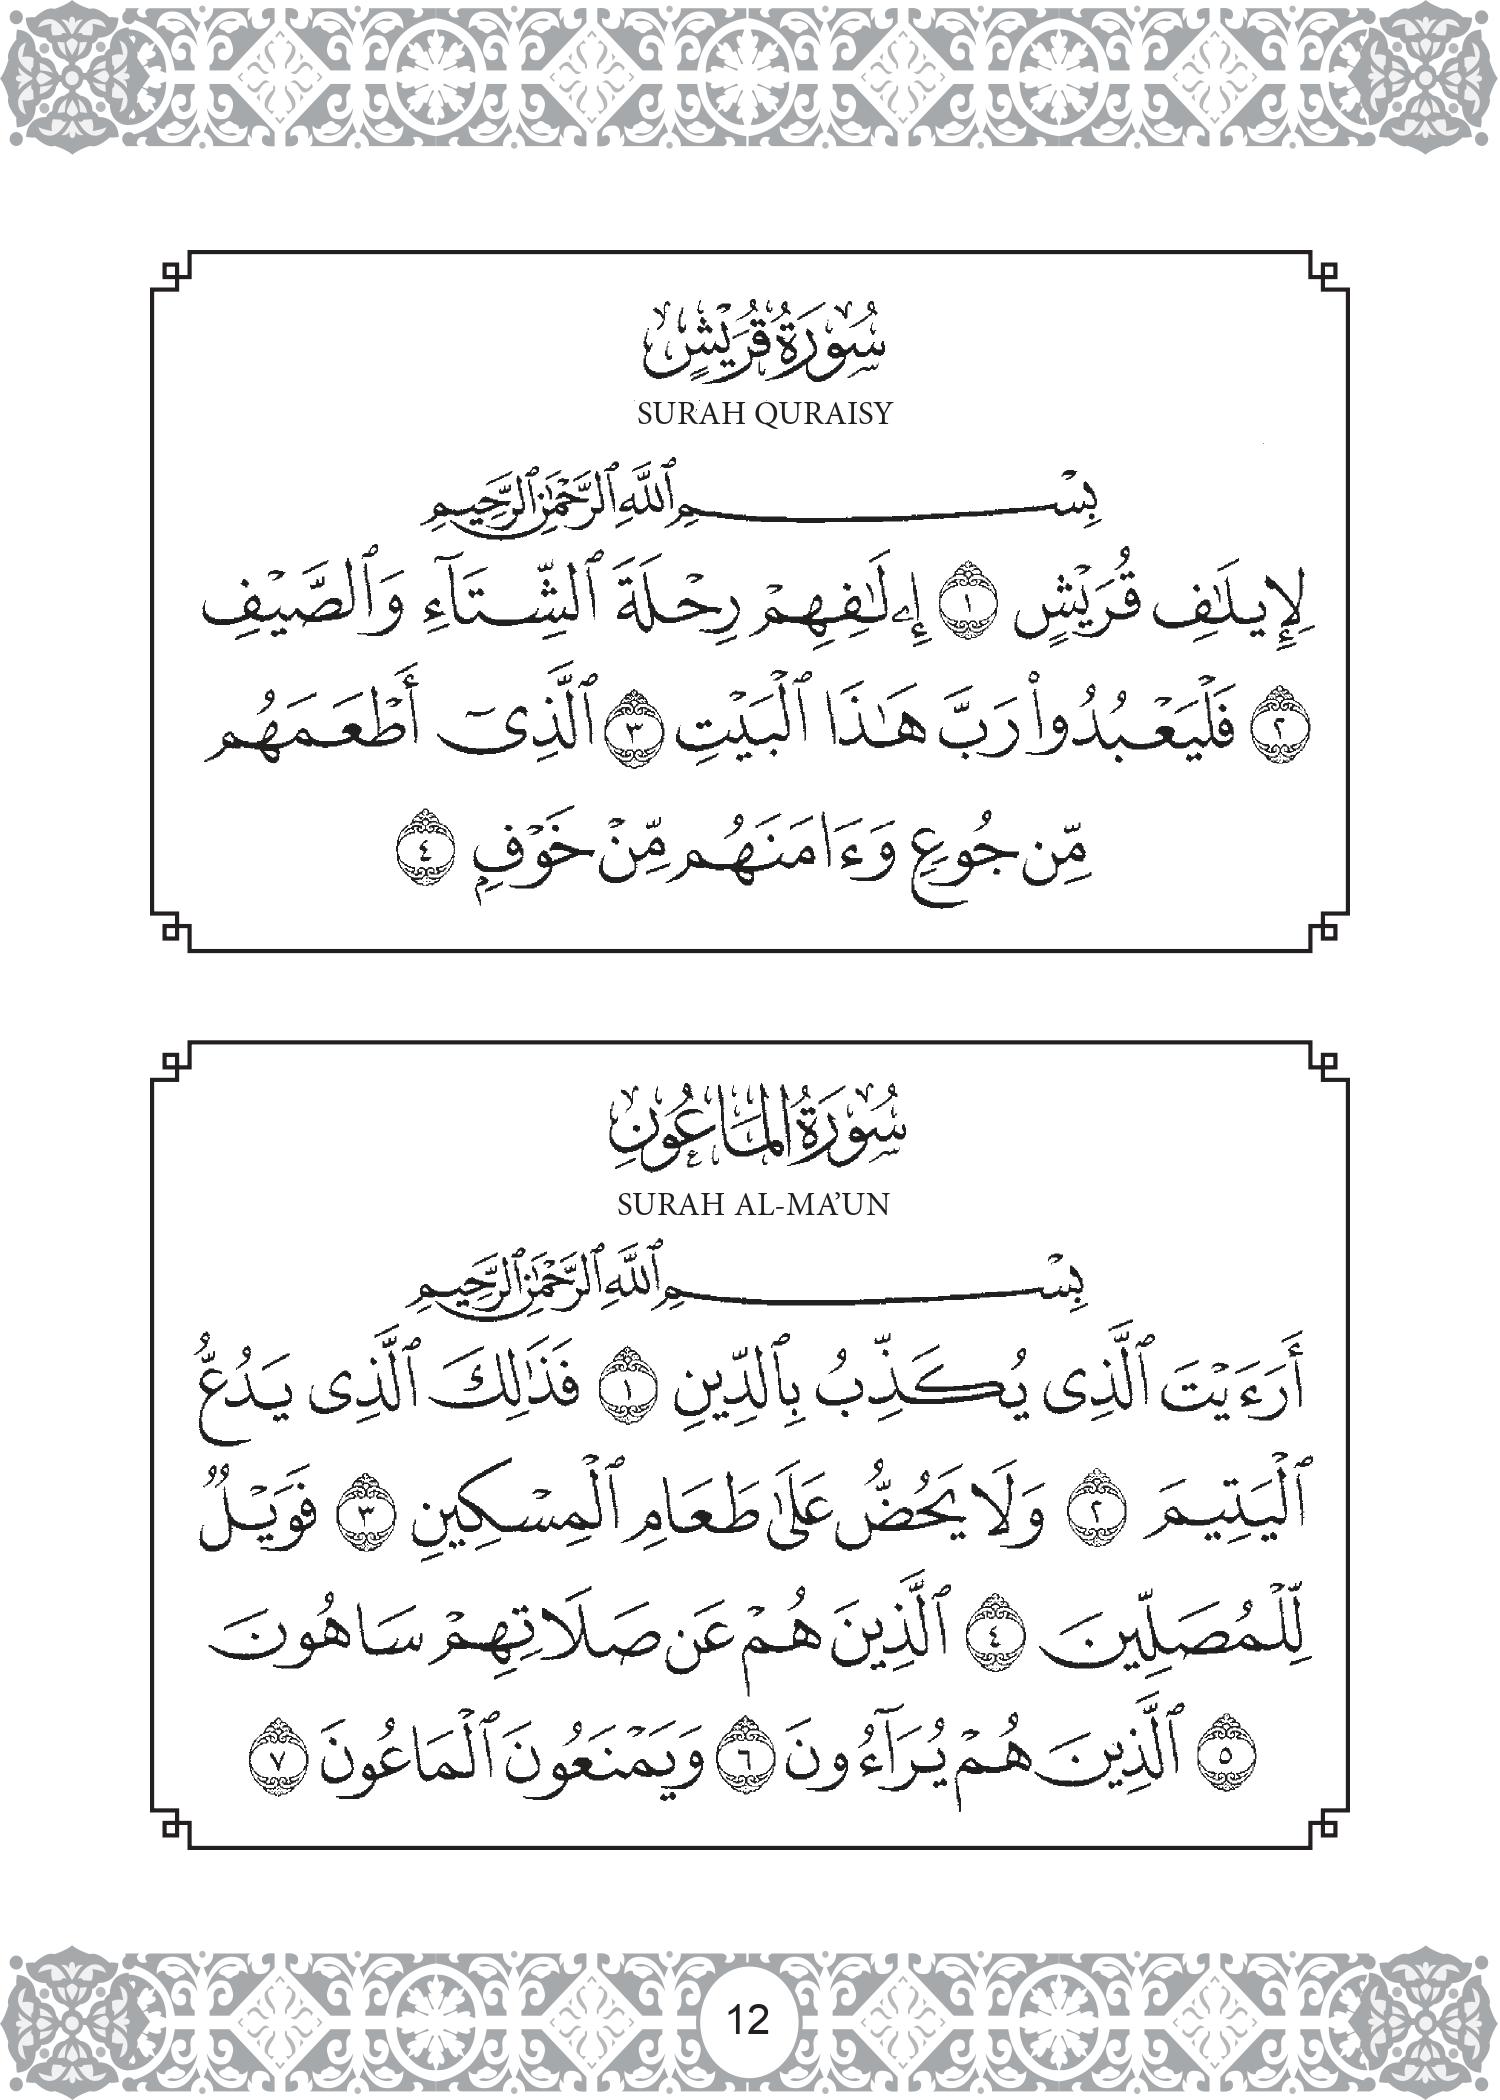 سُورَةُ قُرَيْشٍ
SURAH QURAISY
بِسْمِ ٱللَّهِ ٱلرَّحْمَٰنِ ٱلرَّحِيمِ
لِإِيلَٰفِ قُرَيْشٍ ١ إِۦلَٰفِهِمْ رِحْلَةَ ٱلشِّتَآءِ وَٱلصَّيْفِ
٢ فَلْيَعْبُدُوا۟ رَبَّ هَٰذَا ٱلْبَيْتِ ٣ ٱلَّذِىٓ أَطْعَمَهُم
مِّن جُوعٍ وَءَامَنَهُم مِّنْ خَوْفٍۭ ٤
سُورَةُ المَاعُونِ
SURAH AL-MA’UN
بِسْمِ ٱللَّهِ ٱلرَّحْمَٰنِ ٱلرَّحِيمِ
أَرَءَيْتَ ٱلَّذِى يُكَذِّبُ بِٱلدِّينِ ١ فَذَٰلِكَ ٱلَّذِى يَدُعُّ
ٱلْيَتِيمَ ٢ وَلَا يَحُضُّ عَلَىٰ طَعَامِ ٱلْمِسْكِينِ ٣ فَوَيْلٌ
لِّلْمُصَلِّينَ ٤ ٱلَّذِينَ هُمْ عَن صَلَاتِهِمْ سَاهُونَ
٥ ٱلَّذِينَ هُمْ يُرَآءُونَ ٦ وَيَمْنَعُونَ ٱلْمَاعُونَ ٧
12